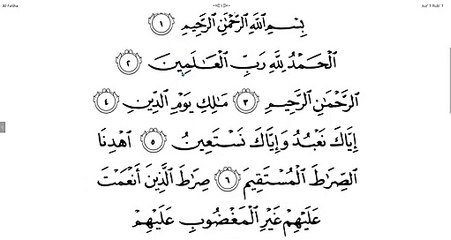 Al Fatiha Juz' 1 Rub' 1
بِسْمِ ٱللَّهِ ٱلرَّحْمَـٰنِ ٱلرَّحِيمِ ١
ٱلْحَمْدُ لِلَّهِ رَبِّ ٱلْعَـٰلَمِينَ ٢
ٱلرَّحْمَـٰنِ ٱلرَّحِيمِ ٣ مَـٰلِكِ يَوْمِ ٱلدِّينِ ٤
إِيَّاكَ نَعْبُدُ وَإِيَّاكَ نَسْتَعِينُ ٥ ٱهْدِنَا
ٱلصِّرَٰطَ ٱلْمُسْتَقِيمَ ٦ صِرَٰطَ ٱلَّذِينَ أَنْعَمْتَ
عَلَيْهِمْ غَيْرِ ٱلْمَغْضُوبِ عَلَيْهِمْ